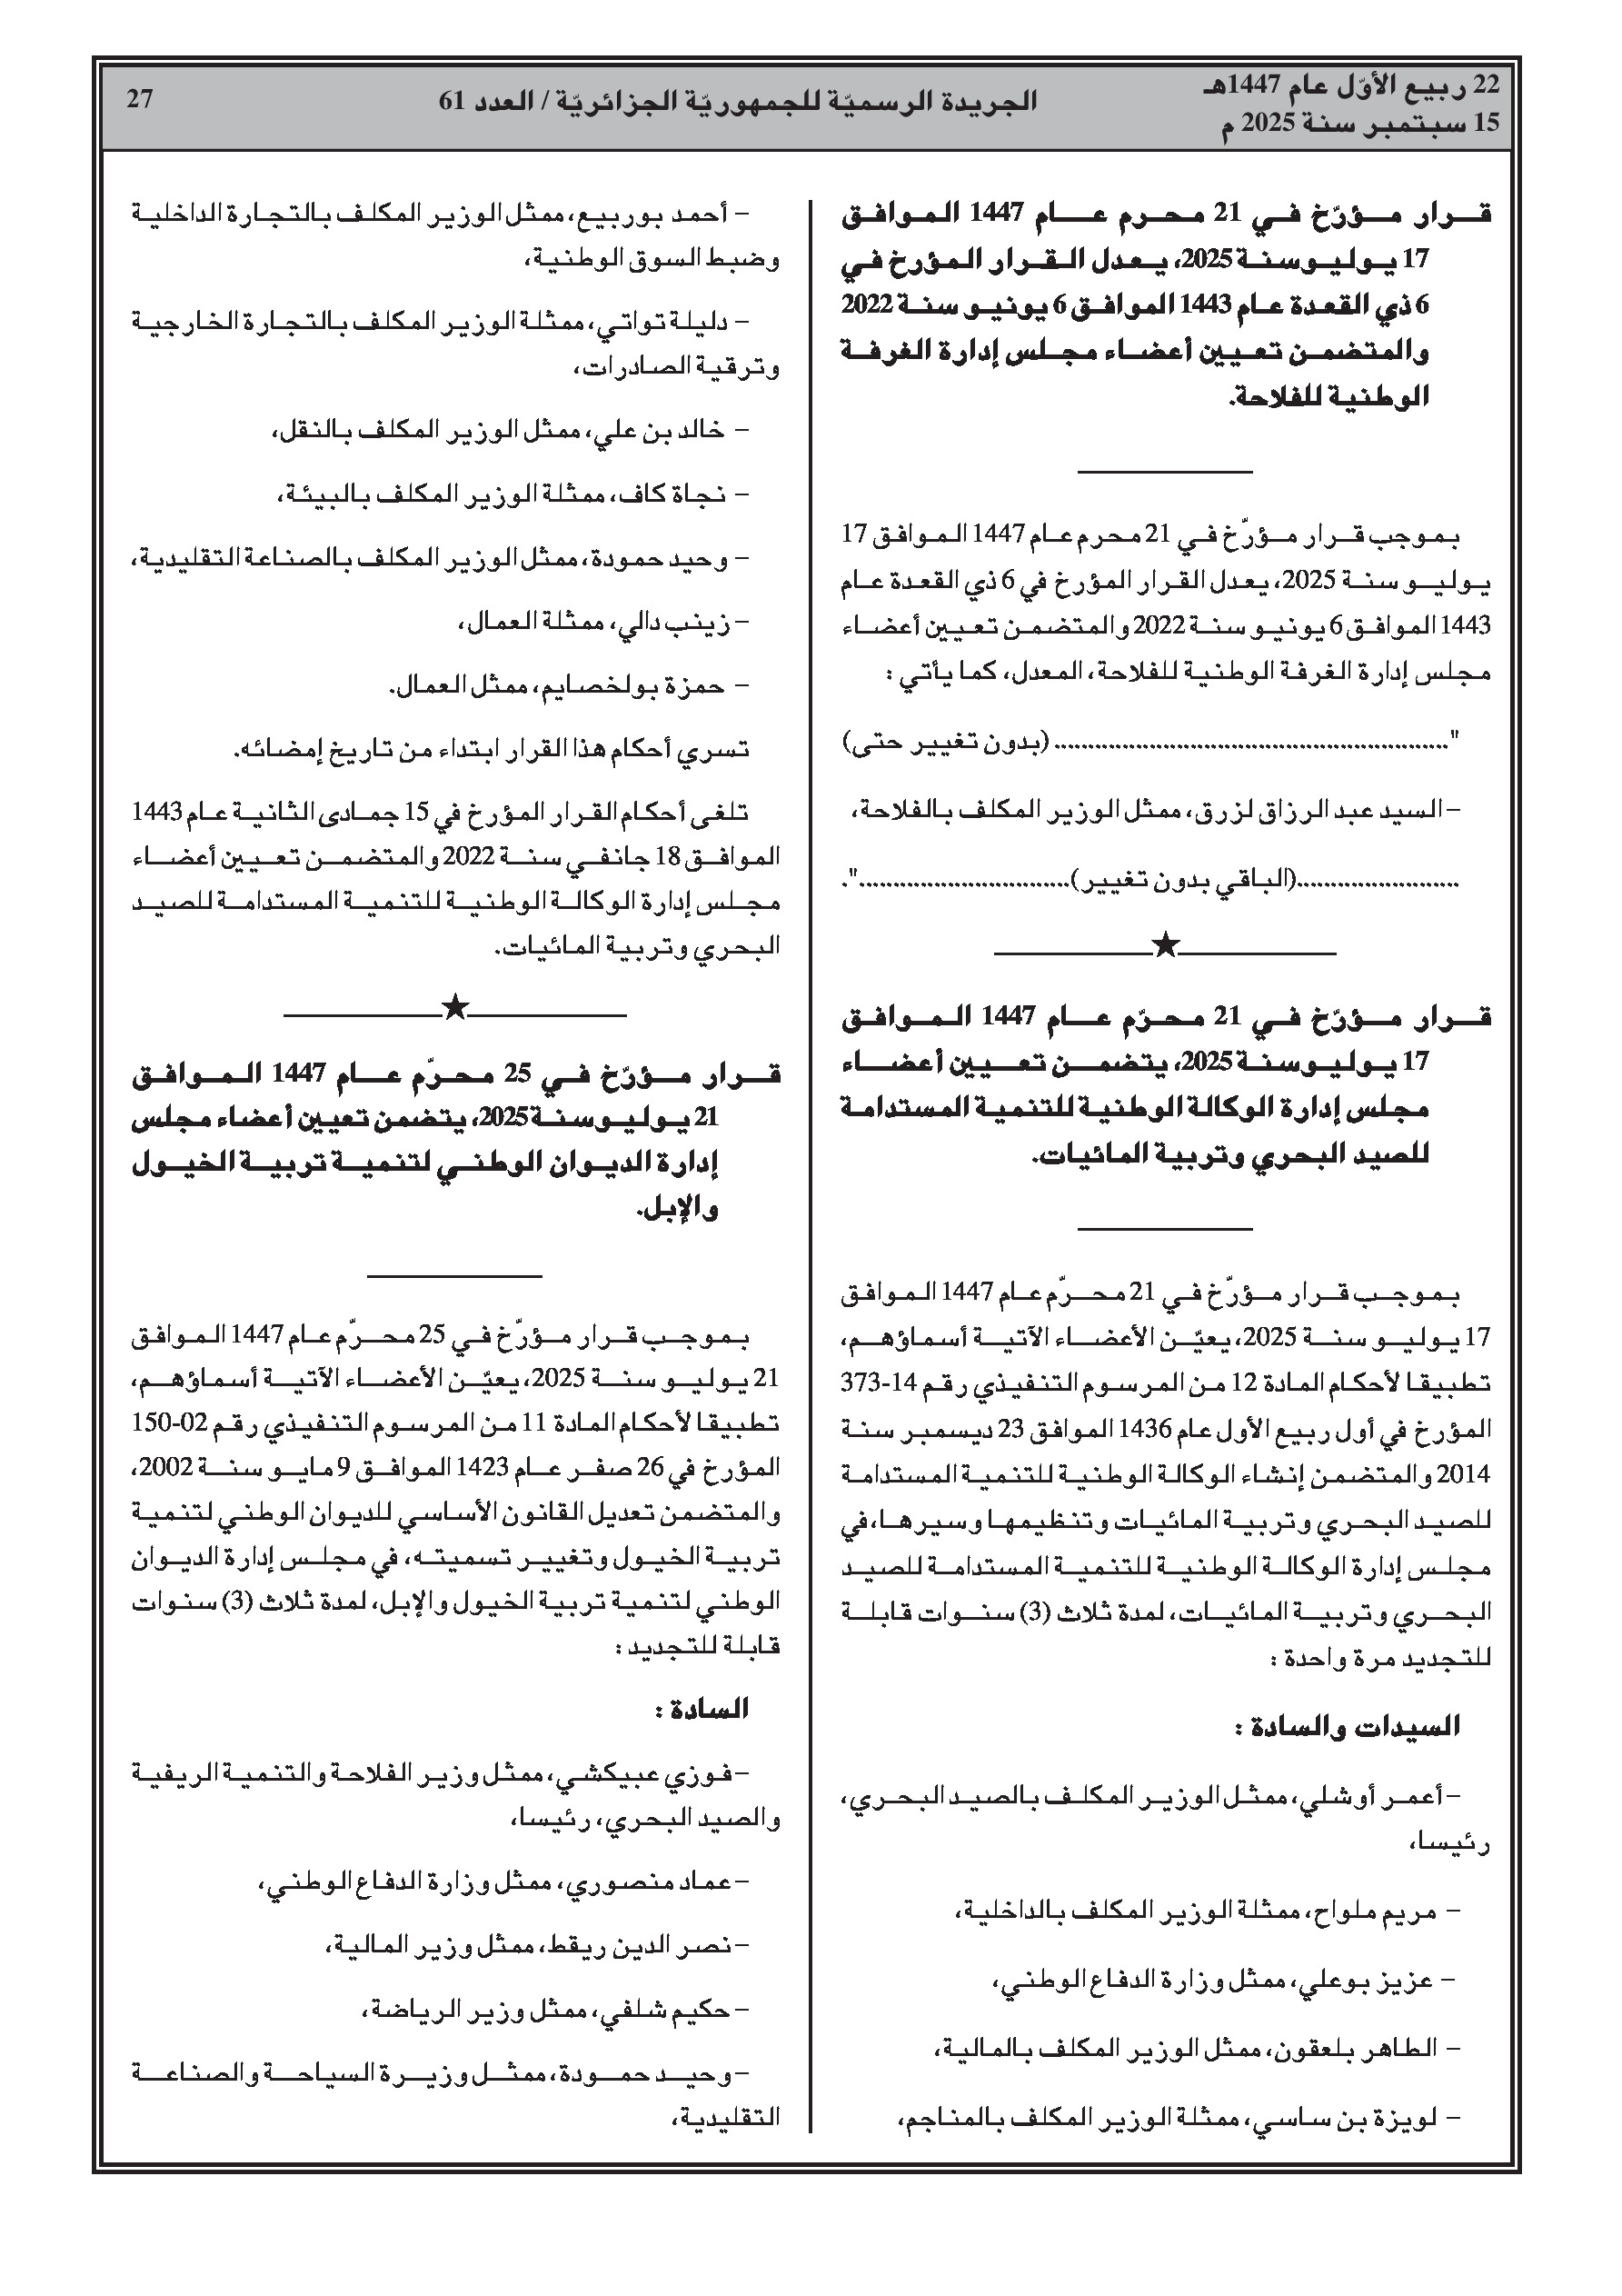 22 ربيع الأوّل عام 1447هـ
15 سبتمبر سنة 2025 م
الجريدة الرسميّة للجمهوريّة الجزائريّة / العدد 61
27
قـرار مـؤرّخ فـي 21 محـرم عـام 1447 الـموافـق
17 يـولـيـو سنـة 2025، يـعـدل الـقـرار الـمـؤرخ فـي
6 ذي القعدة عـام 1443 الموافـق 6 يونيـو سنـة 2022
والمتضمـن تعـييـن أعضـاء مجلـس إدارة الغرفـة
الوطنية للفلاحة.
بـموجب قـرار مـؤرّخ فـي 21 محرم عـام 1447 الـموافـق 17
يـولـيـو سنـة 2025، يعـدل القـرار المؤرخ في 6 ذي القعدة عـام
1443 الموافـق 6 يونيـو سنـة 2022 والمتضمـن تعـييـن أعضـاء
مجلس إدارة الغرفة الوطنية للفلاحة، المعدل، كما يأتي :
".......................................................... (بدون تغيير حتى)
– السيد عبد الرزاق لزرق، ممثل الوزير المكلف بالفلاحة،
........................(الباقي بدون تغيير)...............................".
قـرار مـؤرّخ فـي 21 محـرّم عـام 1447 الـموافـق
17 يـولـيـو سنـة 2025، يـتضمـن تعـييـن أعضـاء
مجلس إدارة الوكالة الوطنية للتنمية المستدامة
للصيد البحري وتربية المائيات.
بـموجـب قـرار مـؤرّخ فـي 21 محـرّم عـام 1447 الـموافـق
17 يـولـيـو سنـة 2025، يعيّـن الأعضـاء الآتيـة أسماؤهـم،
تطبيقا لأحكام المادة 12 من المرسوم التنفيذي رقم 14-373
المؤرخ في أول ربيع الأول عام 1436 الموافق 23 ديسمبر سنة
2014 والمتضمن إنشاء الوكالة الوطنية للتنمية المستدامة
للصيد البحري وتربية المائيات وتنظيمها وسيرها، في
مجلس إدارة الوكالة الوطنية للتنمية المستدامة للصيد
البحري وتربية المائيات، لمدة ثلاث (3) سنوات قابلة
للتجديد مرة واحدة :
السيدات والسادة :
– أعمـر أوشلي، ممثـل الوزيـر المكلـف بالصيـد البحـري،
رئيسا،
– مريم ملواح، ممثلة الوزير المكلف بالداخلية،
– عزيز بوعلي، ممثل وزارة الدفاع الوطني،
– الطاهر بلعقون، ممثل الوزير المكلف بالمالية،
– لويزة بن ساسي، ممثلة الوزير المكلف بالمناجم،
– أحمد بوربيع، ممثل الوزير المكلف بالتجارة الداخلية
وضبط السوق الوطنية،
– دليلة تواتي، ممثلة الوزير المكلف بالتجارة الخارجية
وترقية الصادرات،
– خالد بن علي، ممثل الوزير المكلف بالنقل،
– نجاة كاف، ممثلة الوزير المكلف بالبيئة،
– وحيد حمودة، ممثل الوزير المكلف بالصناعة التقليدية،
– زينب دالي، ممثلة العمال،
– حمزة بولخصايم، ممثل العمال.
تسري أحكام هذا القرار ابتداء من تاريخ إمضائه.
تلغى أحكام القرار المؤرخ في 15 جمادى الثانية عام 1443
الموافـق 18 جانفـي سنـة 2022 والمتضمـن تعـييـن أعضـاء
مجلس إدارة الوكالة الوطنية للتنمية المستدامة للصيد
البحري وتربية المائيات.
قـرار مـؤرّخ فـي 25 محـرّم عـام 1447 الـموافـق
21 يـولـيـو سنـة 2025، يـتضمن تعيين أعضاء مجلس
إدارة الديـوان الوطنـي لتنميـة تربيـة الخيـول
والإبل.
بـموجـب قـرار مـؤرّخ فـي 25 محـرّم عـام 1447 الـموافـق
21 يـولـيـو سنـة 2025، يعيّـن الأعضـاء الآتيـة أسماؤهـم،
تطبيقا لأحكام المادة 11 من المرسوم التنفيذي رقم 02-150
المؤرخ في 26 صفـر عـام 1423 الموافـق 9 مايـو سنـة 2002،
والمتضمن تعديل القانون الأساسي للديوان الوطني لتنمية
تربية الخيول وتغيير تسميته، في مجلس إدارة الديوان
الوطني لتنمية تربية الخيول والإبل، لمدة ثلاث (3) سنوات
قابلة للتجديد :
السادة :
– فوزي عبيكشي، ممثل وزير الفلاحة والتنمية الريفية
والصيد البحري، رئيسا،
– عماد منصوري، ممثل وزارة الدفاع الوطني،
– نصر الدين ريقط، ممثل وزير المالية،
– حكيم شلفي، ممثل وزير الرياضة،
– وحيـد حمـودة، ممثـل وزيـرة السياحـة والصناعـة
التقليدية،